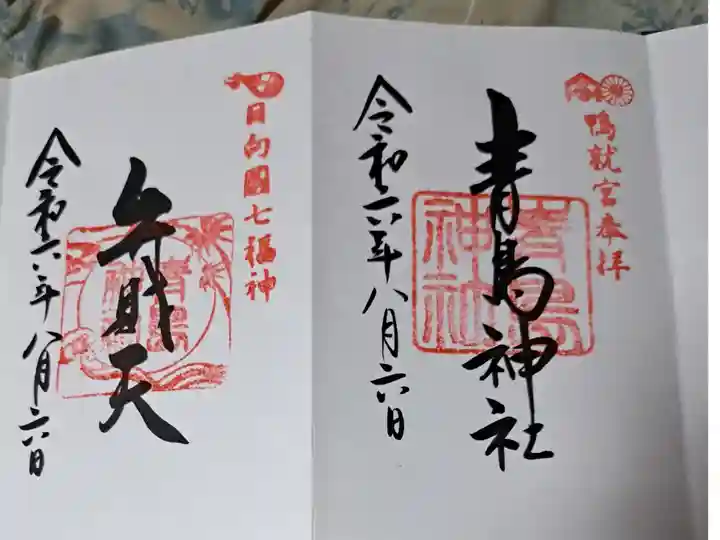 鴨就宮奉拝
青島神社
青島神社
令和六年八月六日
日向国七福神
弁財天
青島神社
令和六年八月六日